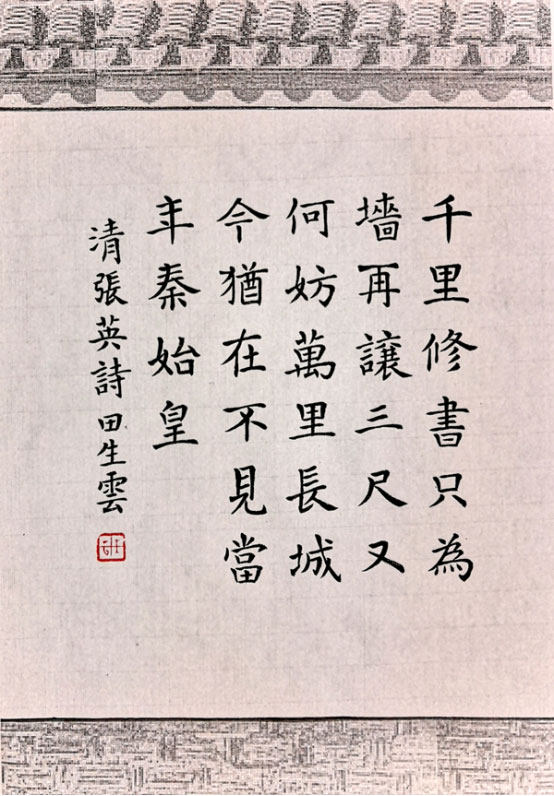 千里修書只為
墻再讓三尺又
何妨萬里長城
今猶在不見當
年秦始皇
清張英詩田生雲